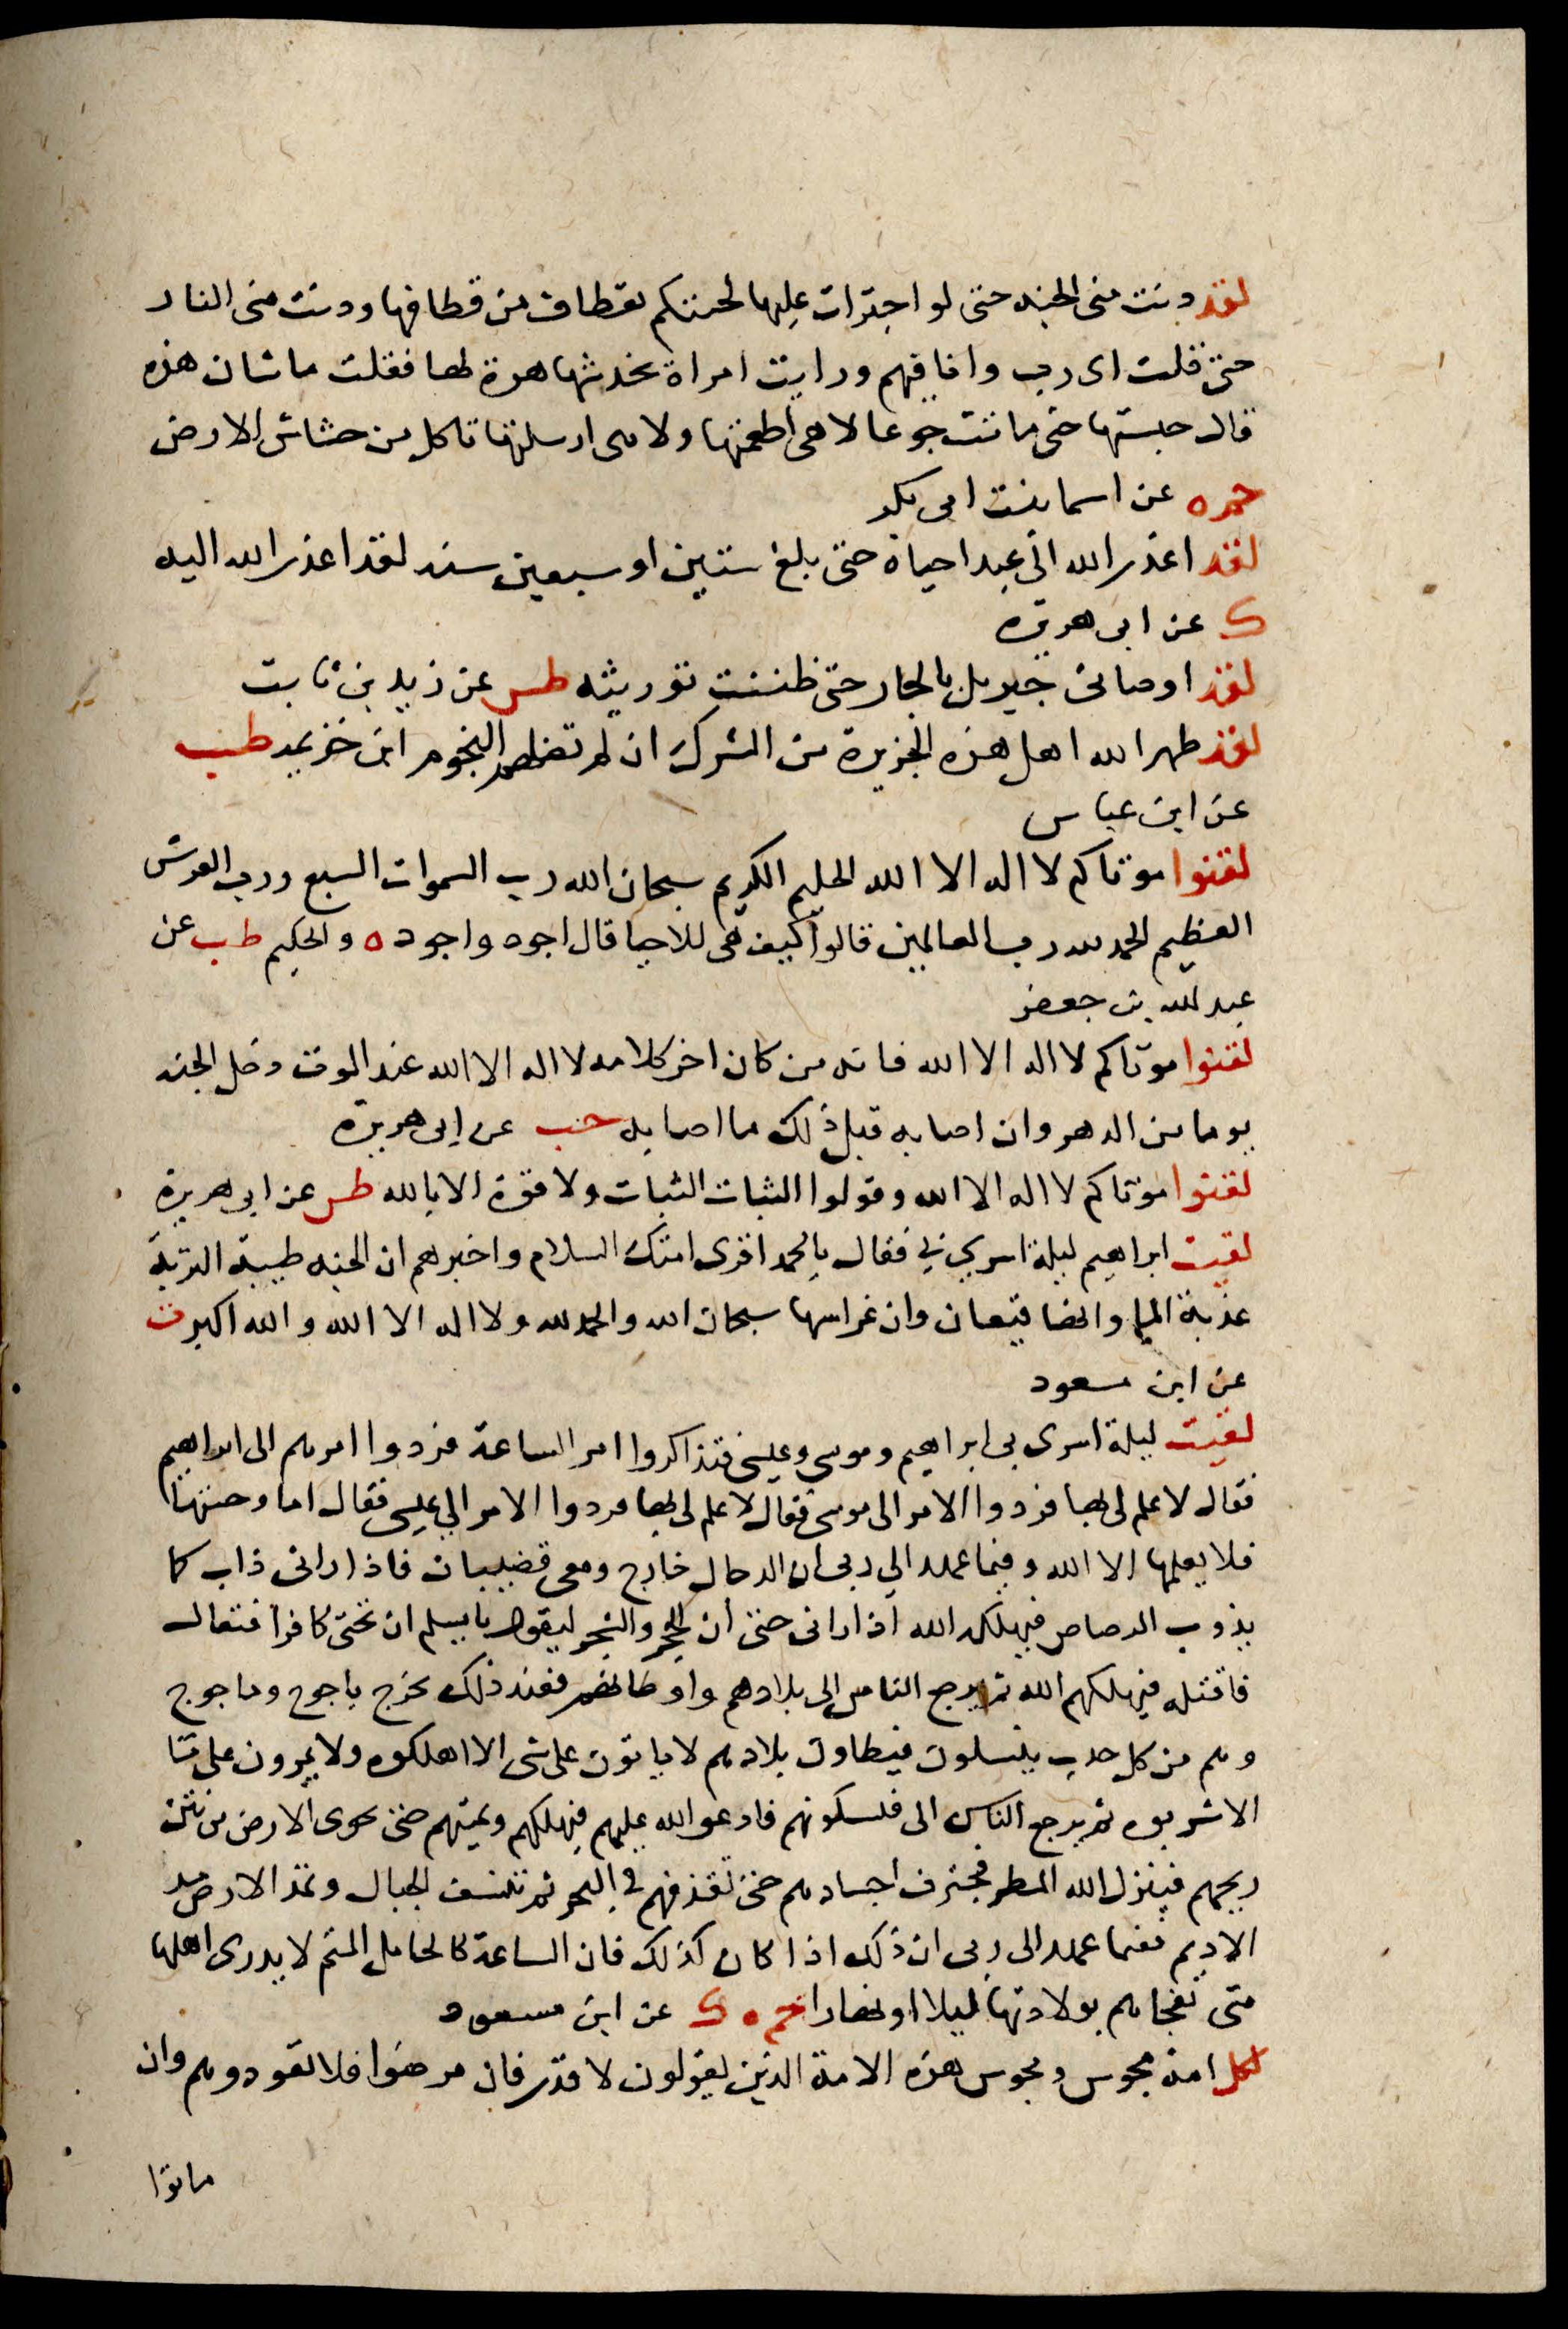 لقد دنت منى الجنه حتى لو اجترات عليها لجئتكم بقطاف من قطافها ودنت منى النار
حتى قلت اى رب وانا فيهم ورايت امراة تخدشها هرة لها فقلت ما شان هذه
قال حبستها حتى ماتت جوعا لا هى اطعمتها ولا هى ارسلتها تاكل من خشاش الارض
حم ه عن اسما بنت ابى بكر
لقد اعذر الله الى عبد احياه حتى بلغ ستين او سبعين سنه لقد اعذر الله اليه
ك عن ابى هريرة
لقد اوصانى جبريل بالجار حتى ظننت توريثه طس عن زيد بن ثابت
لقد طهر الله اهل هذه الجزيرة من الشرك ان لم تضلهم النجوم ابن خزيمه طب
عن ابن عباس
لقنوا موتاكم لا اله الا الله الحليم الكريم سبحان الله رب السموات السبع ورب العرش
العظيم الحمد لله رب العالمين قالوا كيف هى للاحيا قال اجود واجود ه والحكيم طب عن
عبد الله بن جعفر
لقنوا موتاكم لا اله الا الله فانه من كان اخر كلامه لا اله الا الله عند الموت دخل الجنه
يوما من الدهر وان اصابه قبل ذلك ما اصابه حب عن ابى هريرة
لقنوا موتاكم لا اله الا الله وقولوا الثبات الثبات ولا قوة الا بالله طس عن ابى هريرة
لقيت ابراهيم ليلة اسري بي فقال يا محمد اقرى امتك السلام واخبرهم ان الجنه طيبة التربة
عذبة الما وانها قيعان وان غراسها سبحان الله والحمد لله ولا اله الا الله والله اكبر ت
عن ابن مسعود
لقيت ليلة اسرى بى ابراهيم وموسى وعيسى فتذاكروا امر الساعة فردوا امرهم الى ابراهيم
فقال لا علم لى بها فردوا الامر الى موسى فقال لا علم لى بها فردوا الامر الي عيسى فقال اما وجبتها
فلا يعلمها الا الله وفيما عهد الي ربى ان الدجال خارج ومعى قضيبان فاذا رانى ذاب كا
يذوب الرصاص فيهلكه الله اذا رانى حتى ان الحجر والشجر ليقول يا مسلم ان تحتى كافرا فتعال
فاقتله فيهلكهم الله ثم يرجع الناس الى بلادهم واوطانهم فعند ذلك يخرج ياجوج وماجوج
وهم من كل حدب ينسلون فيطاون بلادهم لا ياتون على شى الا اهلكوه ولا يمرون على ما
الا شربوه ثم يرجع الناس الى فيشكونهم فادعو الله عليهم فيهلكهم ويميتهم حتى تجوى الارض من نتن
ريحهم فينزل الله المطر فيجترف اجسادهم حتى تقذفهم فى البحر ثم تنسف الجبال وتمد الارض مد
الاديم ففيما عهد الى ربى ان ذلك اذا كان كذلك فان الساعة كالحامل المتم لا يدرى اهلها
متى تفجاهم بولادتها ليلا او نهارا حم ه ك عن ابن مسعود
لكل امة مجوس ومجوس هذه الامة الذين يقولون لا قدر فان مرضوا فلا تعودوهم وان
ماتوا